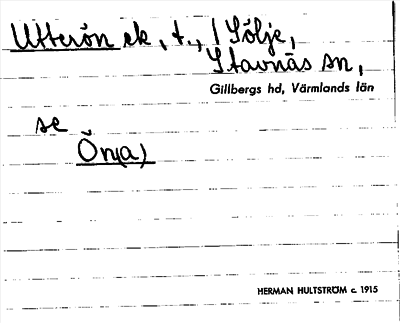 Utterön ek, t., / Sölje,
Stavnäs sn,
Gillbergs hd, Värmlands län
se
Ön(a)
HERMAN HULTSTRÖM c. 1915